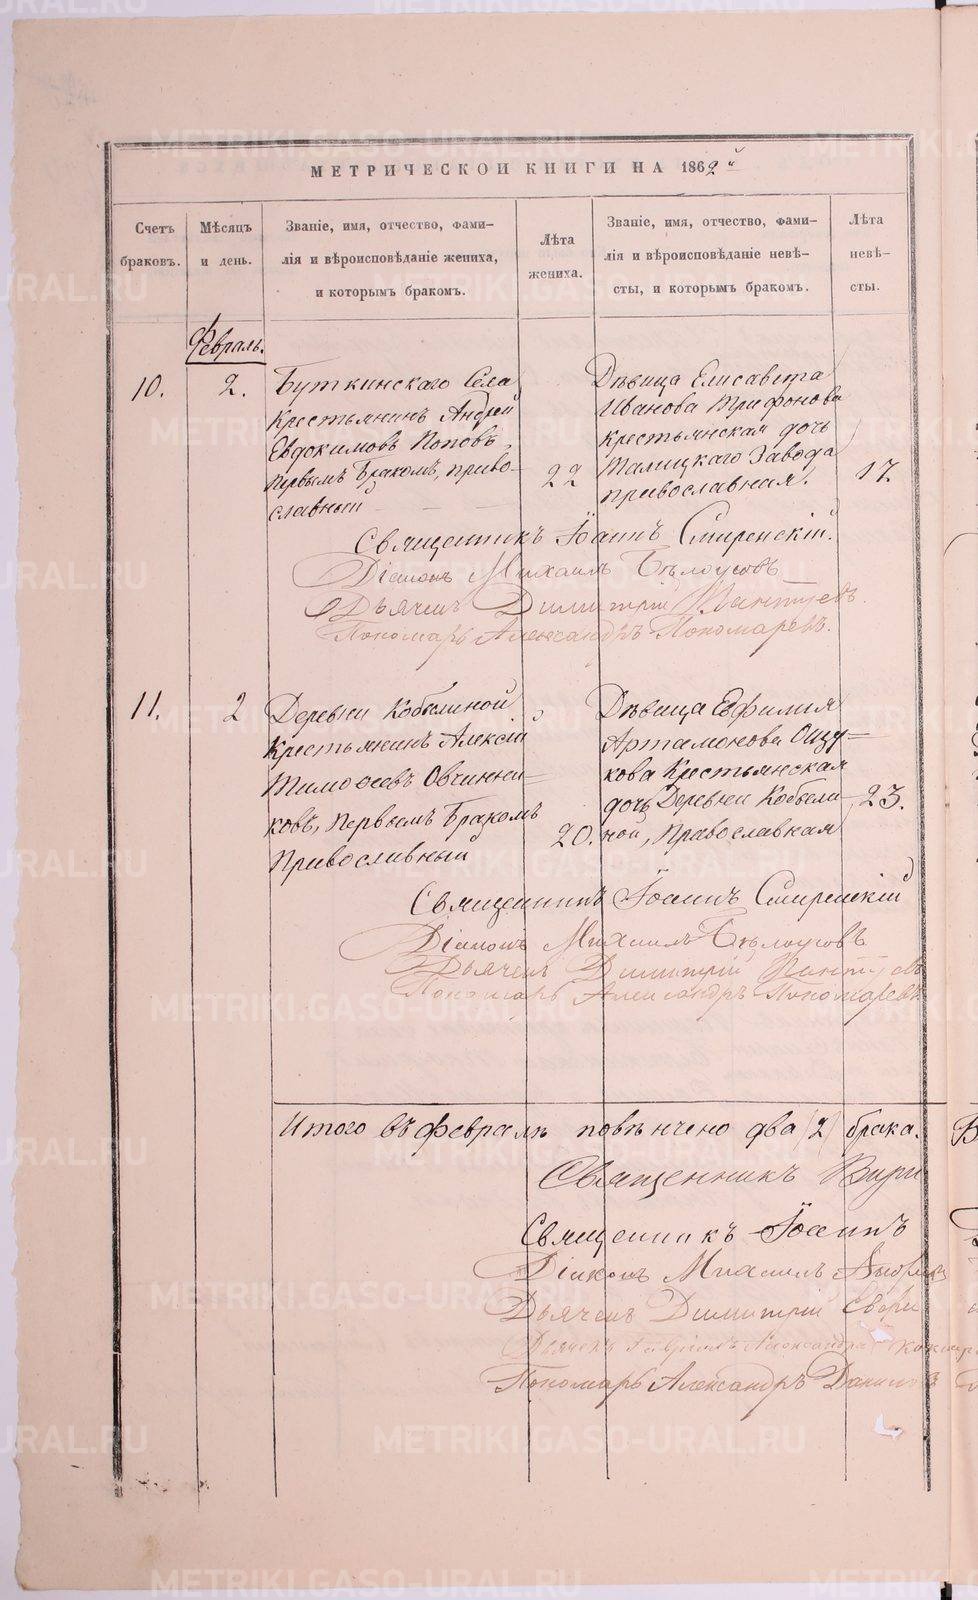 МЕТРИЧЕСКОЙ КНИГИ НА 1862й
Счетъ браковъ.
Мѣсяцъ и день.
Званіе, имя, отчество, фами-
лія и вѣроисповѣданіе жениха,
и которымъ бракомъ.
Лѣта жениха.
Званіе, имя, отчество, фами-
лія и вѣроисповѣданіе невѣ-
сты, и которымъ бракомъ.
Лѣта невѣ-
сты.
Февраль.
10.
2.
Буткинскаго Села
Крестьянинъ Андрей
Евдокимовъ Поповъ,
первымъ бракомъ, право-
славный
22
Дѣвица Елисавета
Иванова Трифонова
крестьянская дочь
Талицкаго Завода
православная.
17.
Священникъ Іоаннъ Смиренскій.
Діаконъ Михаилъ Бѣлоусовъ
Дьячекъ Димитрій
Пономарь Александръ Пономаревъ.
11.
2
Деревни Кобылиной
Крестьянинъ Алексій
Тимоѳеевъ Овчинни-
ковъ, первымъ бракомъ
Православный
20.
Дѣвица Евфимія
Артамонова Ощу-
кова Крестьянская
дочь Деревни Кобыли-
ной, Православная
23.
Священникъ Іоаннъ Смиренскій
Діаконъ Михаилъ Бѣлоусовъ
Дьячекъ Димитрій
Пономарь Александръ Пономаревъ
Итого въ февралѣ повѣнчено два (2) брака.
Священникъ
Священникъ Іоаннъ
Діаконъ Михаилъ
Дьячекъ Димитрій
Дьячекъ
Пономарь Александръ
METRIKI.GASO-URAL.RU